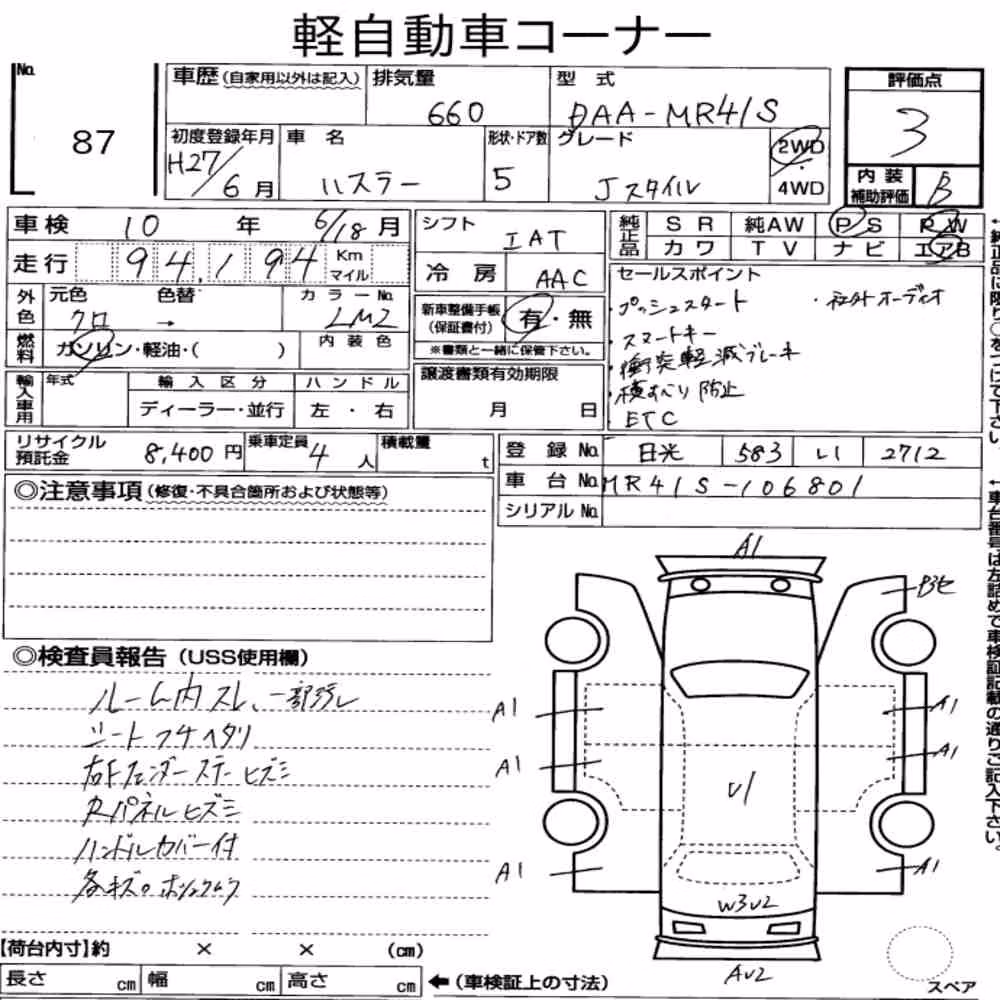 軽自動車コーナー
No.
87
車歴(自家用以外は記入)
排気量
660
型式
DAA-MR41S
評価点
3
初度登録年月
H27/6月
車名
ハスラー
形状・ドア数
5
グレード
Jスタイル
2WD
4WD
内装補助評価
B
車検 10年 6/18月
走行 94,194 Km マイル
シフト
IAT
冷房
AAC
純正品
SR 純AW PS PW
カワ TV ナビ エアB
外色
元色 色替
クロ →
カラーNo.
LMZ
燃料
ガソリン・軽油・( )
内装色
新車整備手帳(保証書付)
有・無
※書類と一緒に保管下さい。
セールスポイント
・プッシュスタート ・社外オーディオ
・スマートキー
・衝突軽減ブレーキ
・横すべり防止
・ETC
輸入車用
年式
輸入区分
ディーラー・並行
ハンドル
左・右
譲渡書類有効期限
月 日
リサイクル預託金
8,400円
乗車定員
4人
積載量
t
登録No. 日光 583 い 2712
車台No. MR41S-106801
シリアルNo.
◎注意事項(修復・不具合箇所および状態等)
◎検査員報告(USS使用欄)
ルーム内スレ、一部汚レ
シートフチヘタリ
右Fフェンダーステーヒズミ
Rパネルヒズミ
ハンドルカバー付
各キズ。
A1
A1
A1
A1
A1
A1
A1
U1
W3U2
AU2
【荷台内寸】約 × × (cm)
長さ cm 幅 cm 高さ cm ←(車検証上の寸法)
スペア
←純正品に限り○をつけて下さい。
←車台番号は左詰めで車検証記載の通りご記入下さい。